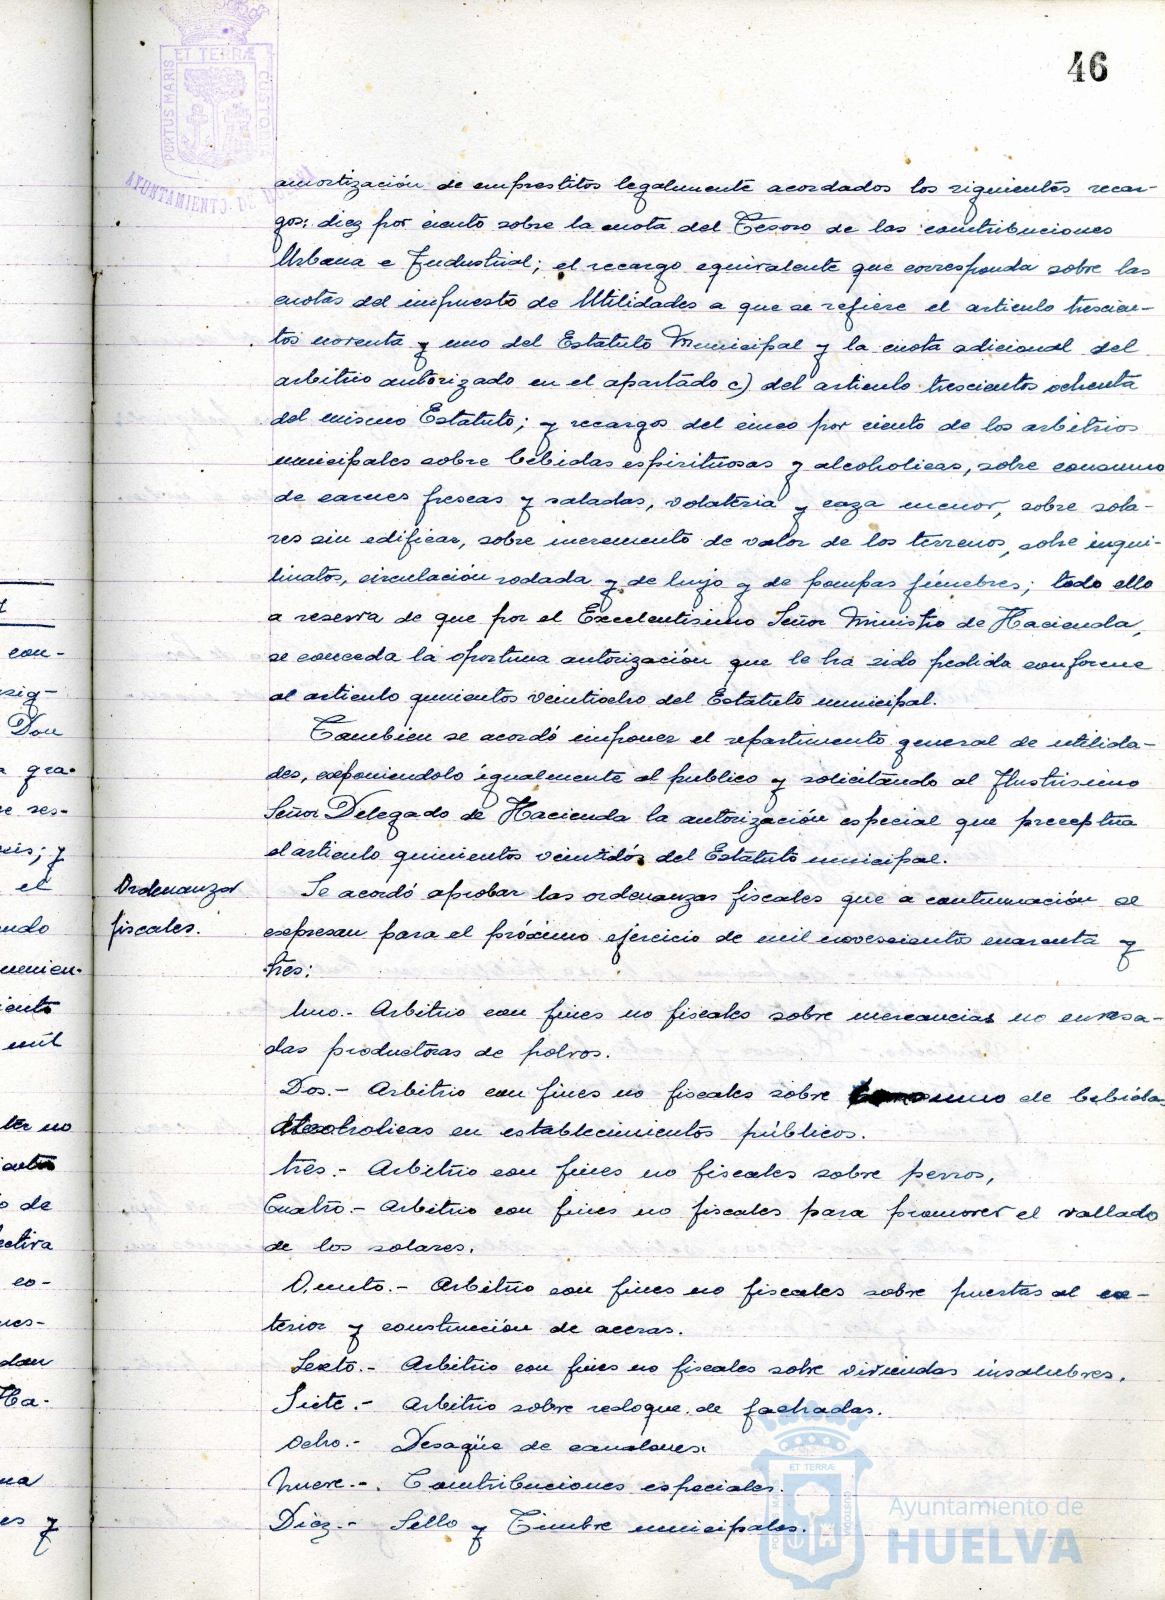 46
PORTUS MARIS
ET TERRÆ
CUSTODIA
AYUNTAMIENTO DE
amortización de emprestitos legalmente acordados los siguientes recar-
gos: diez por ciento sobre la cuota del Tesoro de las contribuciones
Urbana e Industrial; el recargo equivalente que corresponda sobre las
cuotas del impuesto de Utilidades a que se refiere el articulo trescien-
tos noventa y uno del Estatuto Municipal y la cuota adicional del
arbitrio autorizado en el apartado c) del articulo trescientos ochenta
del mismo Estatuto; y recargos del cinco por ciento de los arbitrios
municipales sobre bebidas espirituosas y alcoholicas, sobre consumo
de carnes frescas y saladas, volateria y caza menor, sobre sola-
res sin edificar, sobre incremento de valor de los terrenos, sobre inqui-
linatos, circulación rodada y de lujo y de pompas fúnebres; todo ello
a reserva de que por el Excelentisimo Señor Ministro de Hacienda,
se conceda la oportuna autorización que le ha sido pedida conforme
al articulo quinientos veintiocho del Estatuto municipal.
Tambien se acordó imponer el repartimento general de utilida-
des, exponiendolo igualmente al publico y solicitando al Ilustrisimo
Señor Delegado de Hacienda la autorización especial que preceptua
el articulo quinientos veintidós del Estatuto municipal.
Ordenanzas
fiscales.
Se acordó aprobar las ordenanzas fiscales que a continuación se
expresan para el próximo ejercicio de mil novescientos cuarenta y
tres:
Uno.- Arbitrio con fines no fiscales sobre mercancias no envasa-
das productoras de polvos.
Dos.- Arbitrio con fines no fiscales sobre consumo de bebidas
alcoholicas en establecimientos públicos.
tres.- Arbitrio con fines no fiscales sobre perros,
Cuatro.- Arbitrio con fines no fiscales para promover el vallado
de los solares.
Quinto.- Arbitrio con fines no fiscales sobre puertas al ex-
terior y construcción de aceras.
Sexto.- Arbitrio con fines no fiscales sobre viviendas insalubres.
Siete.- Arbitrio sobre revoque de fachadas.
Ocho.- Desagüe de canalones.
Nueve.-. Contribuciones especiales.
Diez.- Sello y Timbre municipales.
con-
sig-
Don
gra-
res-
y
el
ndo
mil
no
de
co-
Ha-
y
ET TERRÆ
Ayuntamiento de
HUELVA